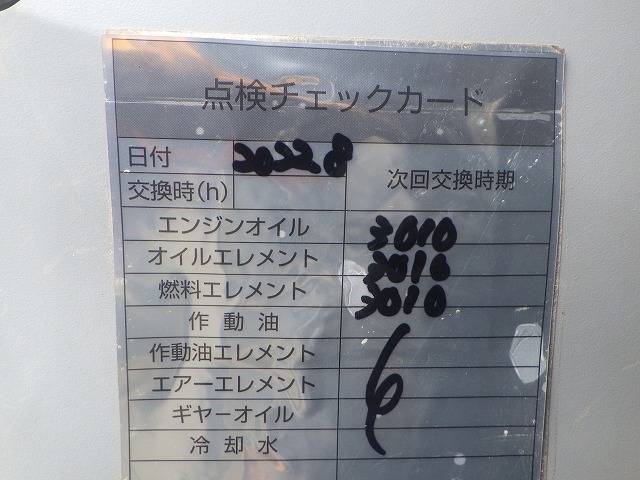 点検チェックカード
日付 2022.8
交換時(h) 次回交換時期
エンジンオイル 3010
オイルエレメント 3010
燃料エレメント 3010
作動油
作動油エレメント
エアーエレメント
ギヤーオイル
冷却水